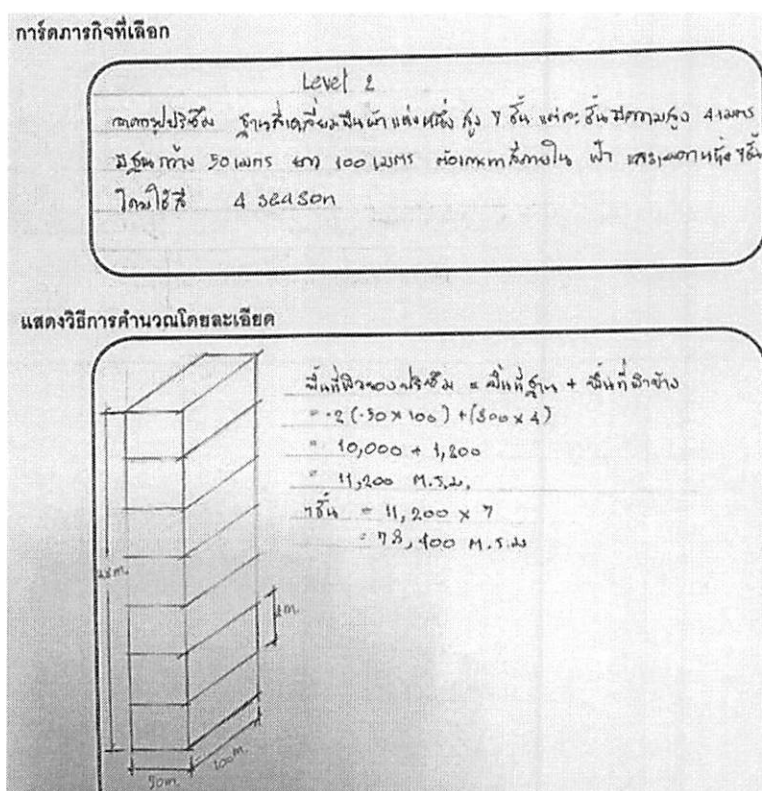 การ์ดภารกิจที่เลือก
Level 2
ฐานสี่เหลี่ยมผืนผ้าแห่งหนึ่ง สูง 7 ชั้น แต่ละชั้นมีความสูง 4 เมตร
มีฐานกว้าง 50 เมตร ยาว 100 เมตร ฝ้า และเพดานทั้ง 7 ชั้น
โดยใช้สี 4 season
แสดงวิธีการคำนวณโดยละเอียด
พื้นที่ผิวของปริซึม = พื้นที่ฐาน + พื้นที่ผิวข้าง
= 2 (50 × 100) + (300 × 4)
= 10,000 + 1,200
= 11,200 ต.ร.ม.
7 ชั้น = 11,200 × 7
= 78,400 ต.ร.ม
28 m.
4 m.
100 m.
50 m.